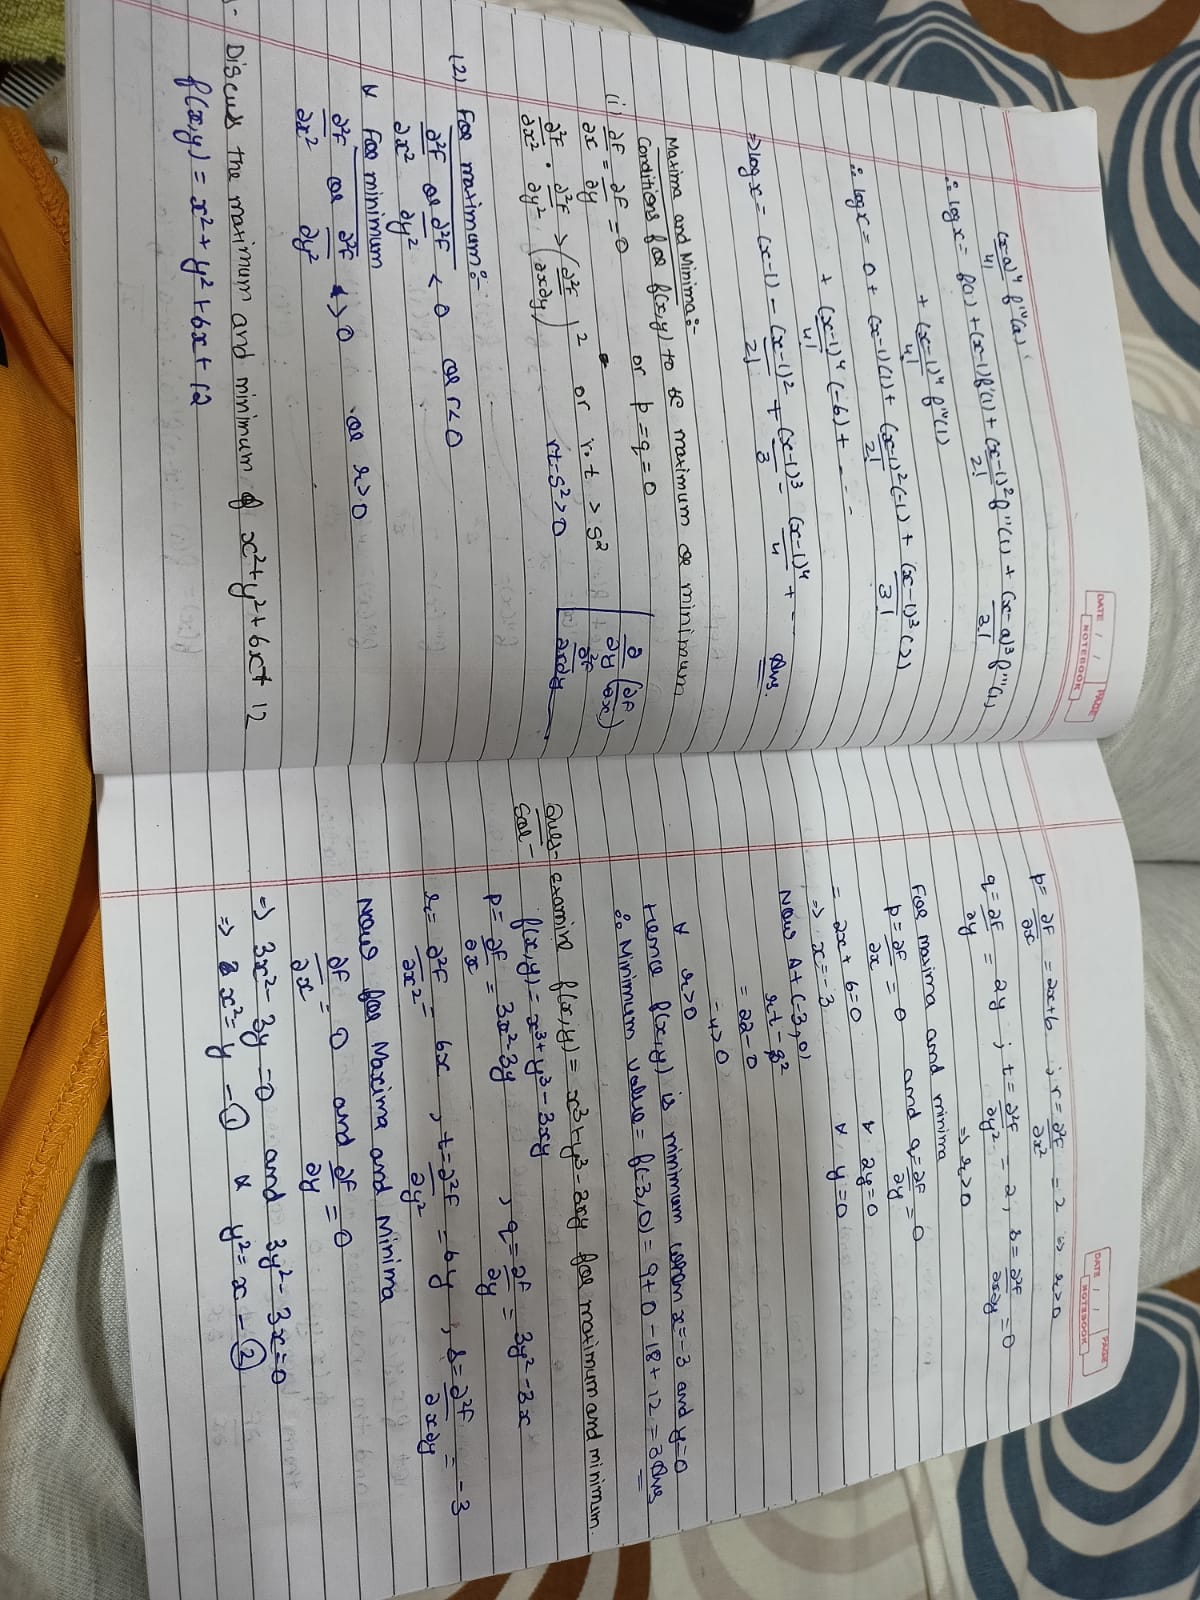 DATE / / PAGE
NOTEBOOK
(x-a)⁴/4! fⁱᵛ(a)
∴ log x = f(1) + (x-1)f'(1) + (x-1)²/2! f''(1) + (x-a)³/3! f'''(1)
+ (x-1)⁴/4! fⁱᵛ(1)
∴ log x = 0 + (x-1)(1) + (x-1)²/2! (-1) + (x-1)³/3! (2)
+ (x-1)⁴/4! (-6) + ---
⇒ log x = (x-1) - (x-1)²/2! + (x-1)³/3 - (x-1)⁴/4 + --- Ans.
Maxima and Minima:-
Conditions for f(x,y) to be maximum or minimum
(i) ∂F/∂x = ∂F/∂y = 0 or p = q = 0
∂²F/∂x² . ∂²F/∂y² > (∂²F/∂x∂y)² or r.t > S²
rt-S²>0
∂/∂y (∂F/∂x)
∂²F/∂x∂y
(2) For maximum:-
∂²F/∂x² or ∂²F/∂y² < 0 or r<0
& For minimum
∂²F/∂x² or ∂²F/∂y² > 0 or r>0
- Discuss the maximum and minimum of x²+y²+6x+12
f(x,y) = x²+y²+6x+12
DATE / / PAGE
NOTEBOOK
p = ∂F/∂x = 2x+6 ; r = ∂²F/∂x² = 2 ⇒ r>0
q = ∂F/∂y = 2y ; t = ∂²F/∂y² = 2, s = ∂²F/∂x∂y = 0
⇒ r>0
For maxima and minima
p = ∂F/∂x = 0 and q = ∂F/∂y = 0
= 2x+6=0 & 2y=0
⇒ x=-3 & y=0
Now At (-3,0)
rt-s²
= 22-0
= 4>0
& r>0
Hence f(x,y) is minimum when x=-3 and y=0
∴ Minimum value = f(-3,0) = 9+0-18+12 = 3 Ans
Ques- Examine f(x,y) = x³+y³-3xy for maximum and minimum.
Sol- f(x,y) = x³+y³-3xy
p = ∂F/∂x = 3x²-3y , q = ∂F/∂y = 3y²-3x
r = ∂²F/∂x² = 6x , t = ∂²F/∂y² = 6y , s = ∂²F/∂x∂y = -3
Now for Maxima and Minima
∂F/∂x = 0 and ∂F/∂y = 0
⇒ 3x²-3y=0 and 3y²-3x=0
⇒ x²=y -① & y²=x -②